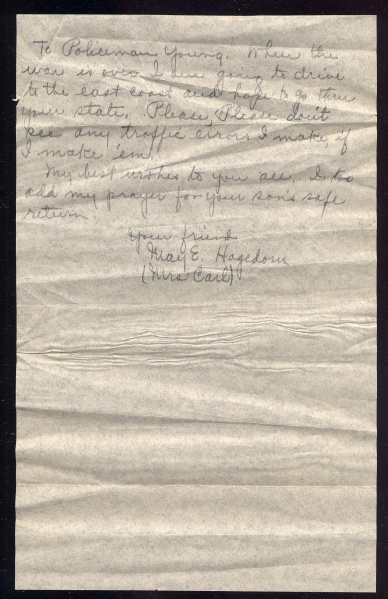 To Policeman Young. When the
war is over I am going to drive
to the east coast and hope to go thru
your state. Please, Please don't
see any traffic errors I make, if
I make 'em.
My best wishes to you all. I too
add my prayer for your son's safe
return
Your friend
May E. Hagedorn
(Mrs Carl)